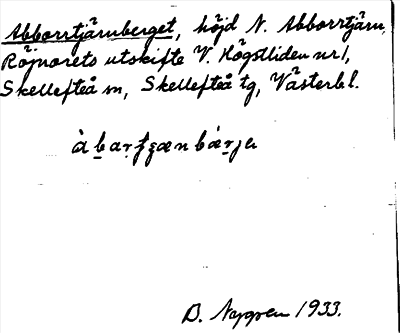 Abborrtjärnberget, höjd N. Abborrtjärn,
Röjnorets utskifte V. Högstliden nr 1,
Skellefteå sn, Skellefteå tg, Västerb l.
B. Nygren 1933.